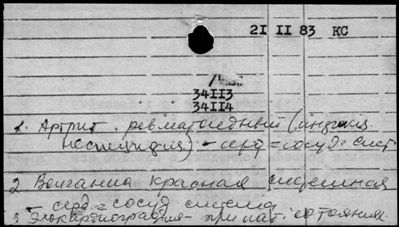 21 II 83 КС
34113
34114
1. Артрит. ревматоидный (индукция.
несницидия) - серд = сосуд = сист
2 Волчанка красная системная
- серд = сосуд система
3 Эхокардиография - при пат. состояния.